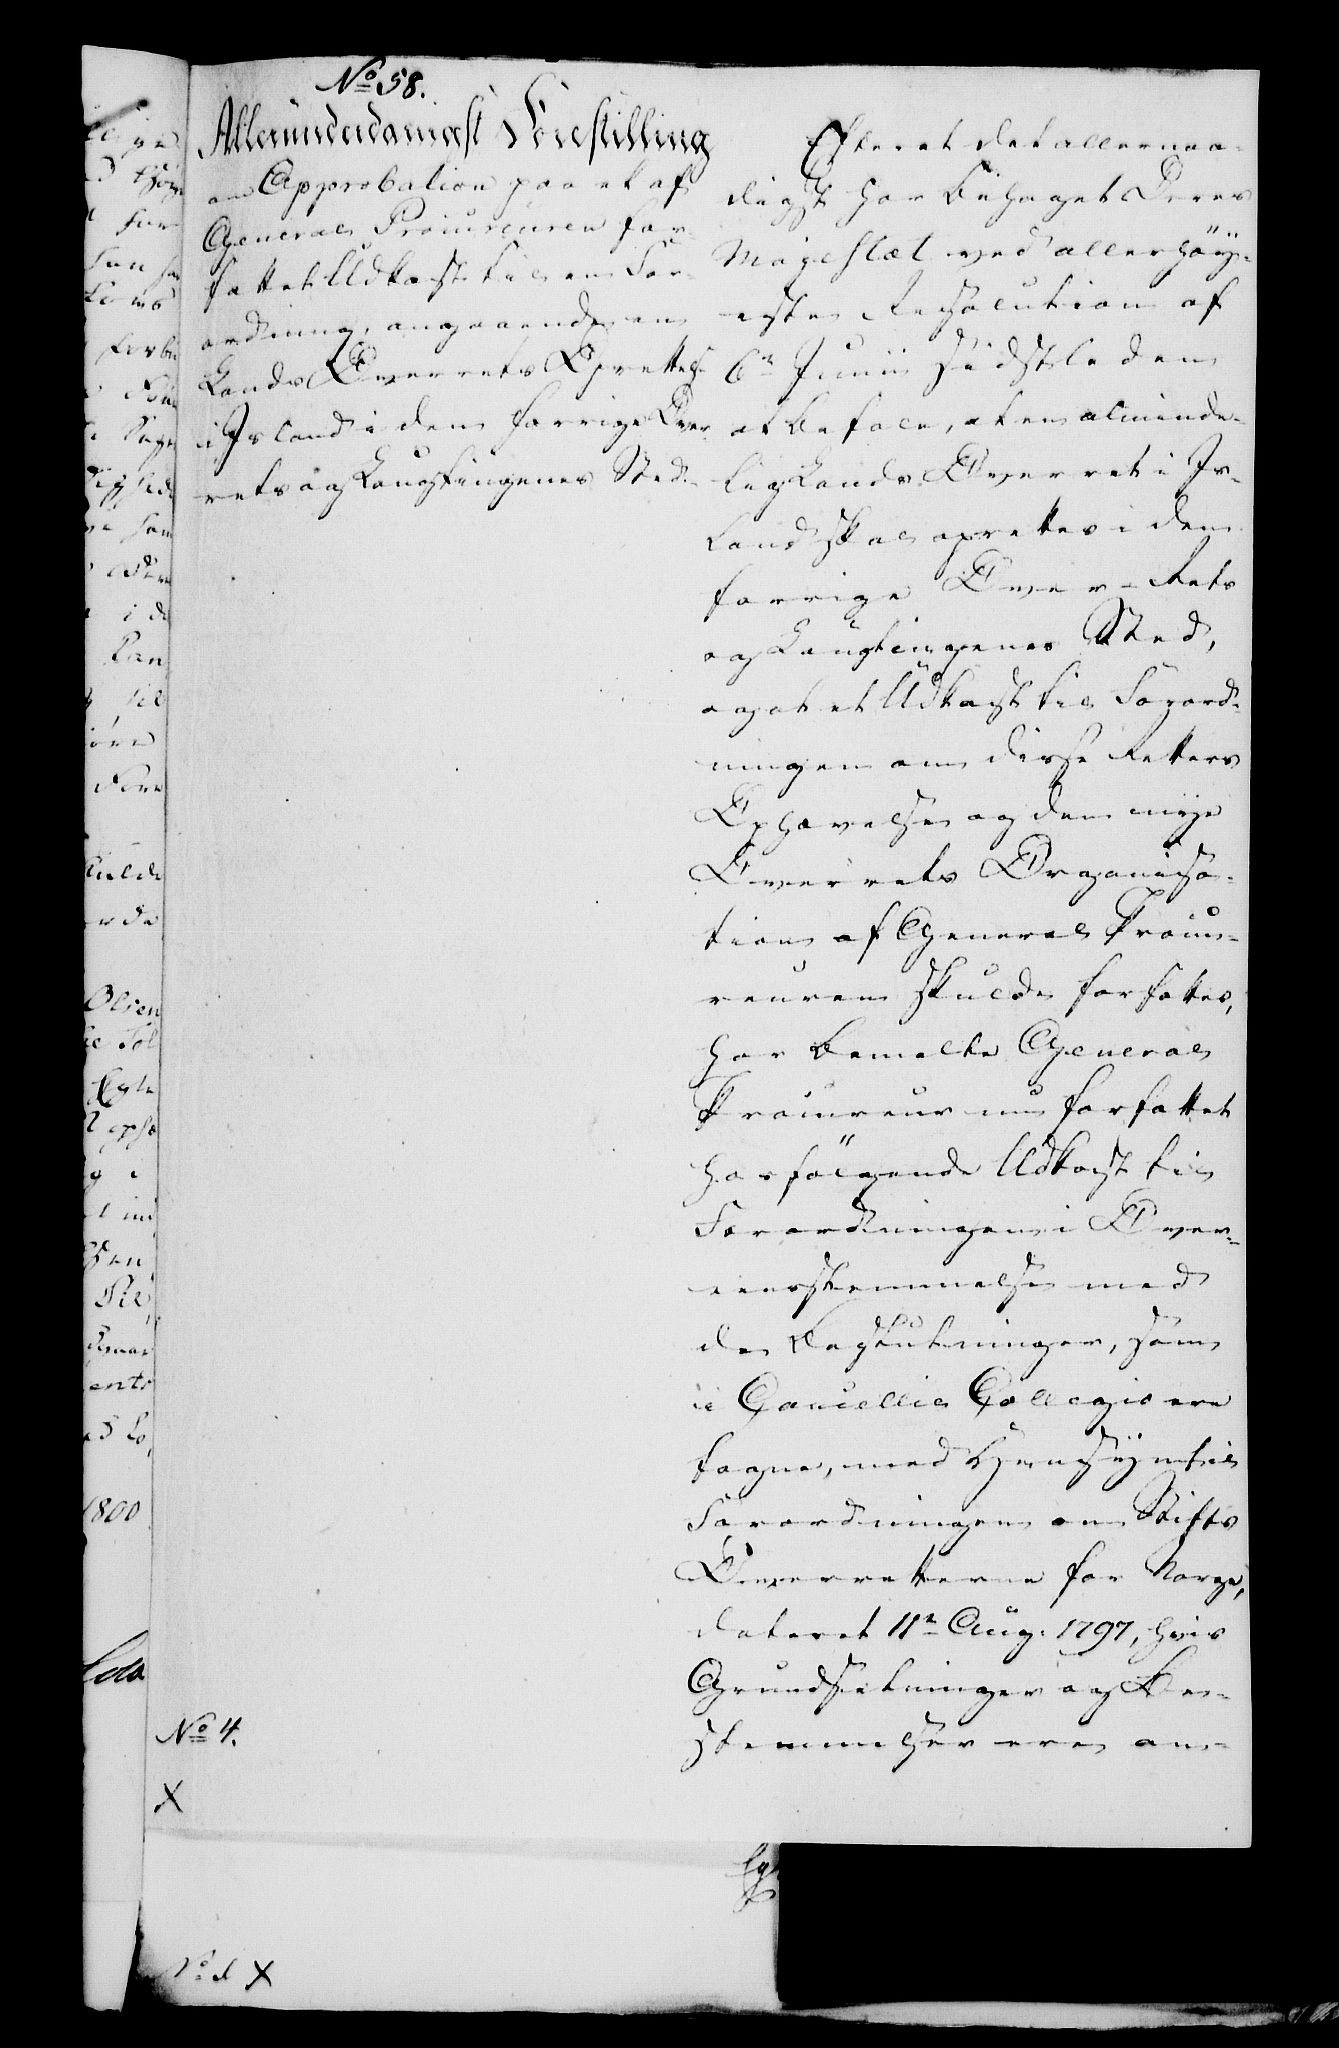 No 58.
Allerunderdanigst Forestilling
om Approbation paa et af
General Procureuren for-
fattet Udkast til en For-
ordning, angaaende en
Lands Overrets Oprettelse
i Island i den forrige Over
rets og Laugtingenes Sted.
Efteret det allernaa-
digst har behaget Deres
Majestæt ved allerhöy-
este Resolution af
6te Junii sidstleden
at befale, at en alminde-
lig Lands Overret i Is-
land skal oprettes i den
forrige Over-Rets
og Laugtingenes Sted,
og at et Udkast til Forord-
ningen om disse Retters
Ophævelse og den nye
Overrets Organisa-
tion af General Procu-
reuren skulde forfattes,
har bemelte General
Procureur nu forfattet
hosfölgende Udkast til
Forordningen i Over-
eensstemmelse med
de Beslutninger, som
i Cancellie Collegio ere
tagne, med Hensyn til
Forordningen om Stifts
Overretterne for Norge,
dateret 11te Aug. 1797, hvis
Grundsetninger og Be-
stemmelser ere an-
No 4.
X
X
Olsen
1800